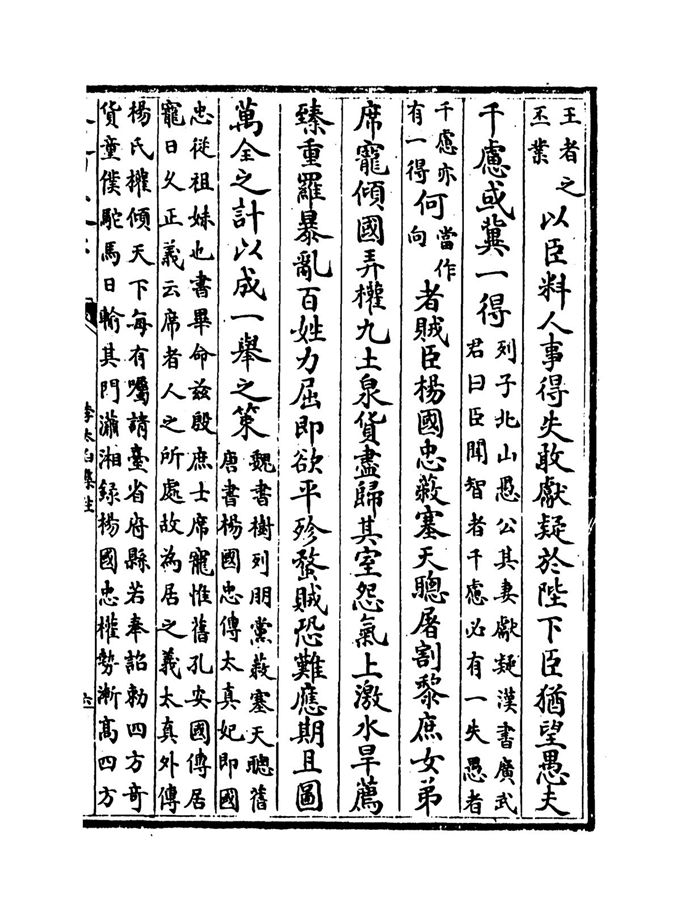 王者之
丕業
以臣料人事得失敢獻疑於陛下臣猶望愚夫
千慮或冀一得
列子北山愚公其妻獻疑漢書廣武
君曰臣聞智者千慮必有一失愚者
千慮亦
有一得
何
當作
向
者賊臣楊國忠蔽塞天聰屠割黎庶女弟
席寵傾國弄權九土泉貨盡歸其室怨氣上激水旱薦
臻重羅暴亂百姓力屈即欲平殄蝥賊恐難應期且圖
萬全之計以成一舉之策
魏書樹列朋黨蔽塞天聰舊
唐書楊國忠傳太真妃即國
忠從祖妹也書畢命兹殷庶士席寵惟舊孔安國傳居
寵日久正義云席者人之所處故為居之義太真外傳
楊氏權傾天下每有囑請臺省府縣若奉詔勅四方奇
貨童僕駝馬日輸其門瀟湘録楊國忠權勢漸髙四方
李太白集注